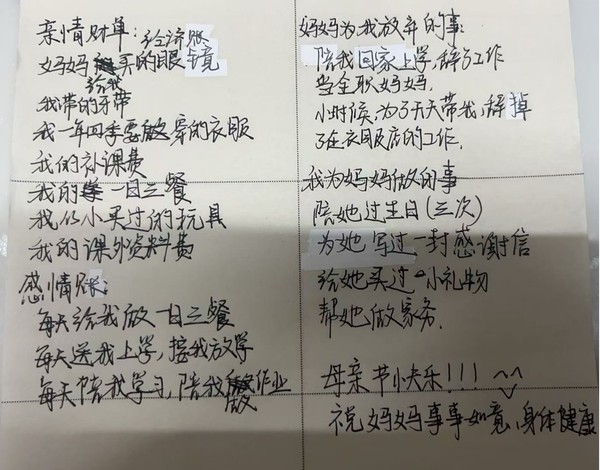 亲情财单：经济账
妈妈给我买的眼镜
我带的牙带
我一年四季要穿的衣服
我的补课费
我的一日三餐
我从小买过的玩具
我的课外资料费
感情账：
每天给我做一日三餐
每天送我上学，接我放学
每天陪我学习，陪我做作业
妈妈为我放弃的事：
陪我回家上学，辞了工作
当全职妈妈．
小时候，为了天天带我，辞掉
了在衣服店的工作．
我为妈妈做的事
陪她过生日(三次)
为她写过一封感谢信
给她买过小礼物
帮她做家务．
母亲节快乐!!! ^^
祝妈妈事事如意，身体健康